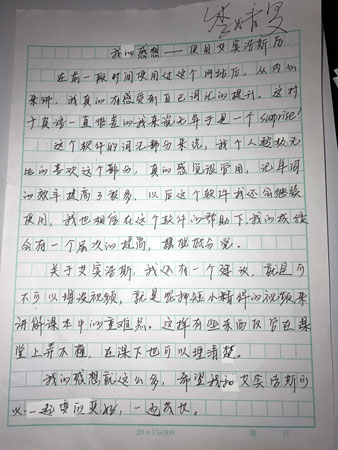 我的感想——使用艾宾浩斯后
在前一段时间使用过这个网站后，从内心
来讲，我真的有感受到自己词汇的提升。这对
于英语一直很差的我来说无异于是一个surprise!
这个软件的词汇部分来说，我个人超级无
比的喜欢这个部分，真的感觉很管用，尤单词
的效率提高了很多，以后这个软件我还会继续
使用，我也相信在这个软件的帮助下，我的成绩
会有一个层次的提高，摆脱低分
关于艾宾浩斯，我还有一个建议，就是可
不可以增设视频，就是那种短小精悍的视频来
讲解课本中的重难点。这样有些东西尽管在课
堂上弄不懂，在课下也可以理清楚。
我的感想就这么多，希望我和艾宾浩斯可
以一起变的更好，一起成长。
20×15=300
第 页